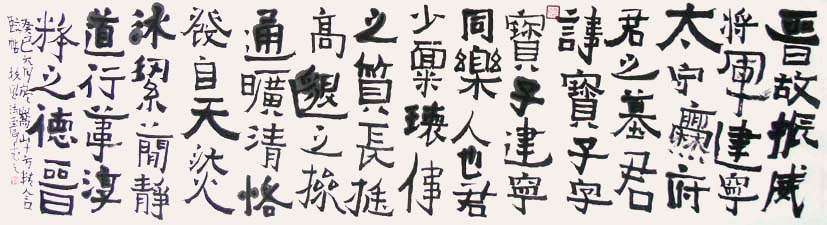 晉故振威
將軍建寧
太守爨府
君之墓君
諱寶子字
寶子建寧
同樂人也君
少稟瓌偉
之質長挺
高邈之操
通曠清恪
發自天然
冰絜簡靜
道行葦淳
粹之德晉
癸巳
臨帖